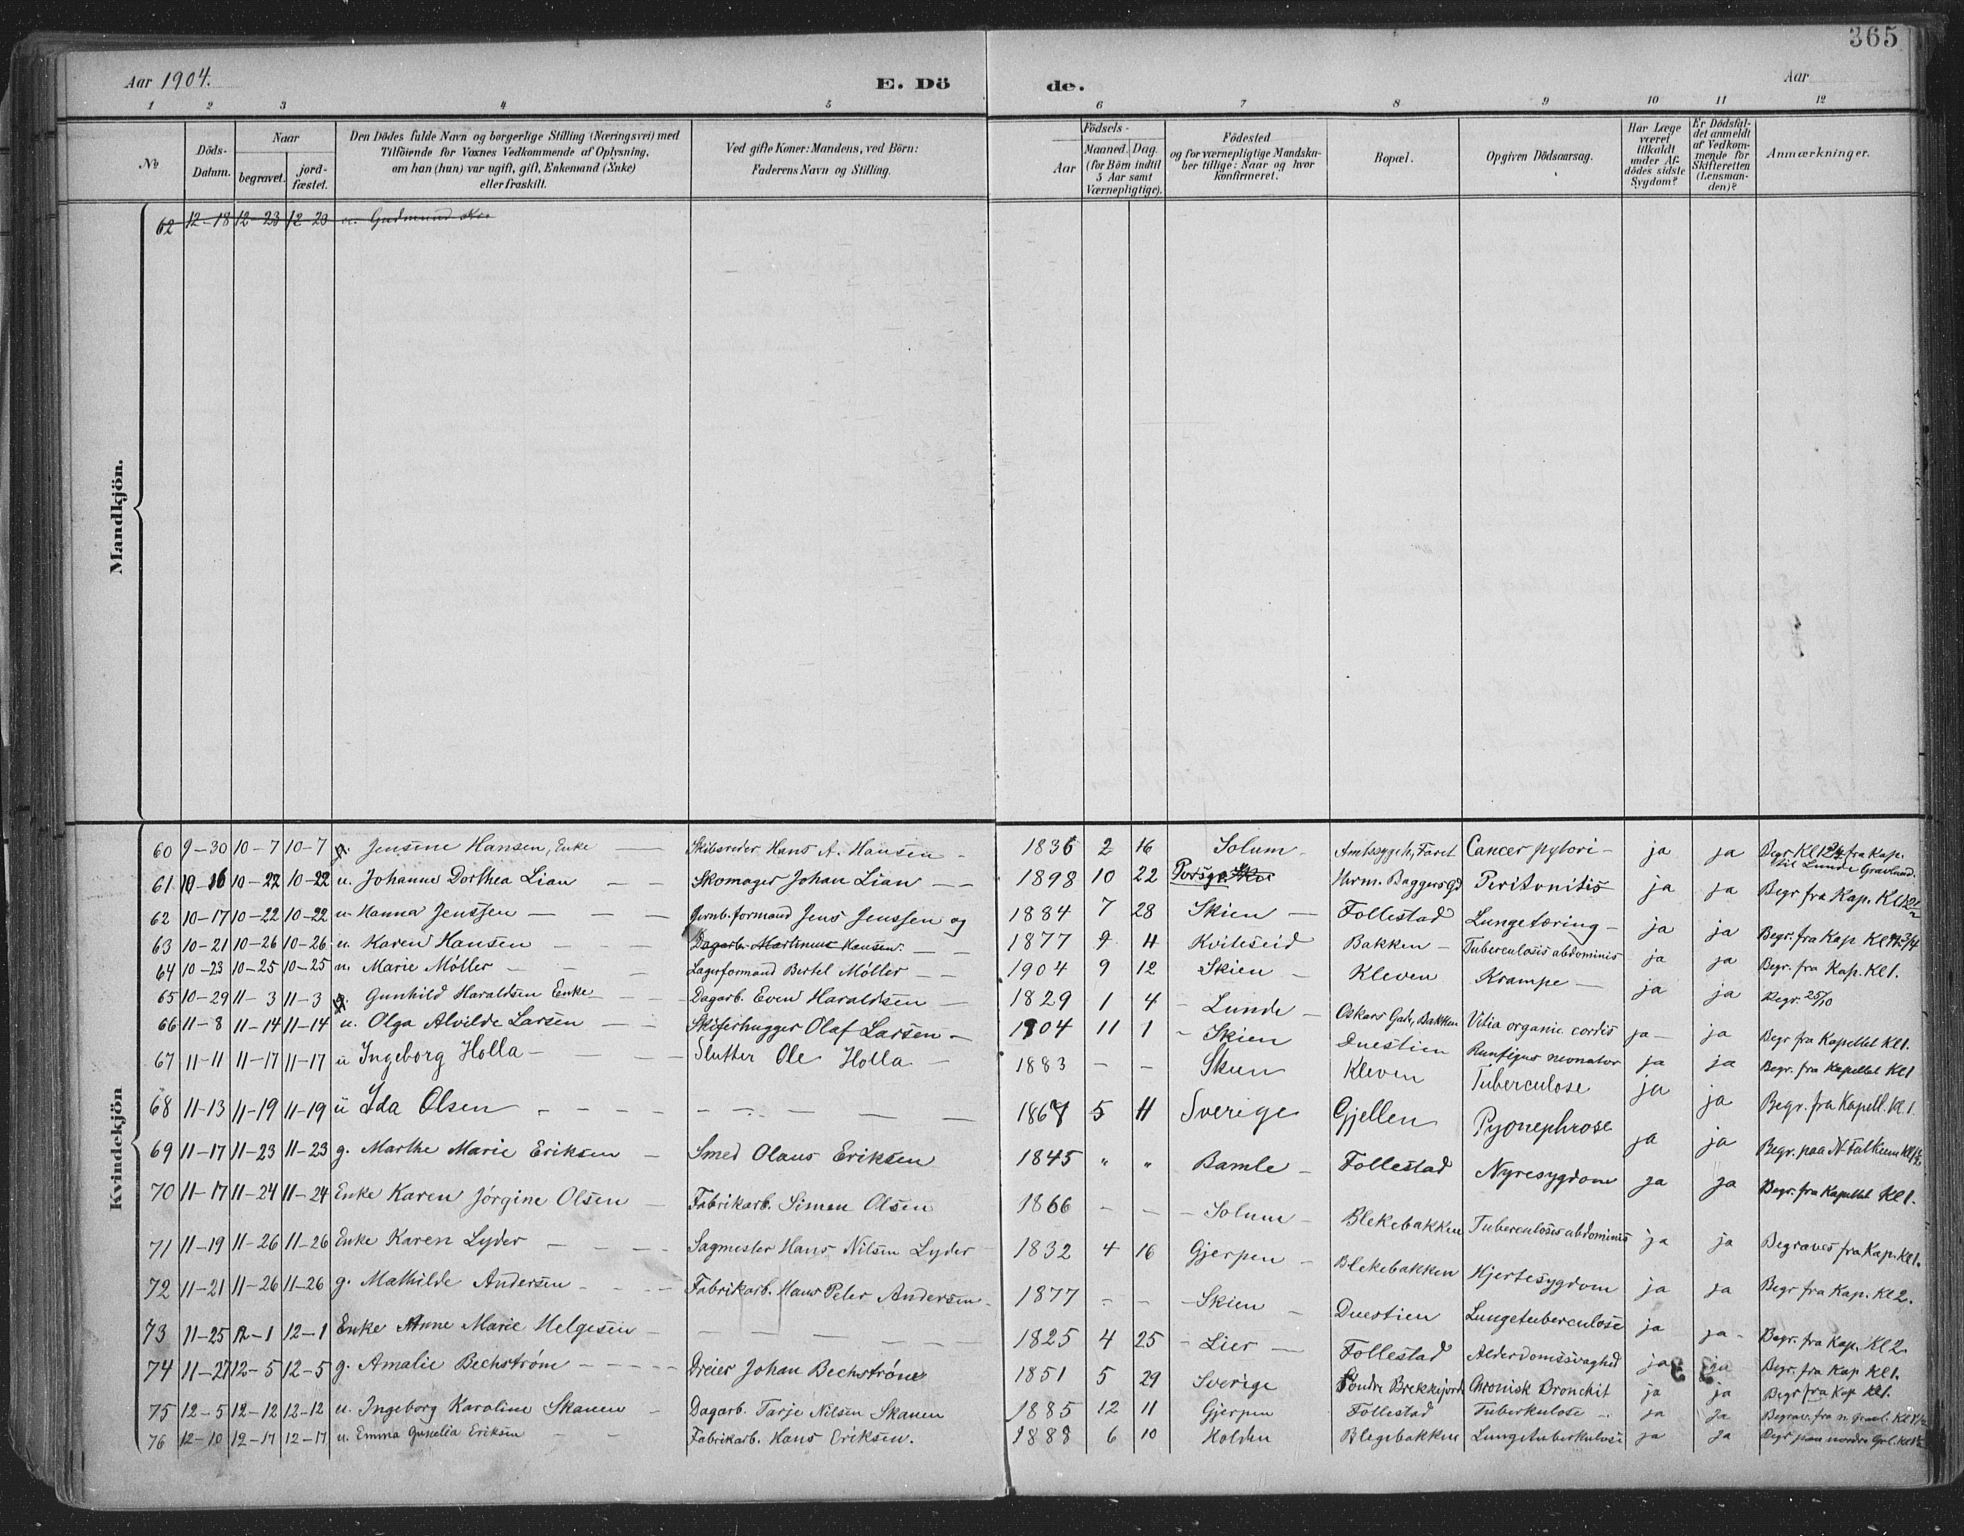 365
Aar 1904. E. Dö de. Aar
1 2 3 4 5 6 7 8 9 10 11 12
No
Döds-Datum.
Naar begravet. jordfæstet.
Den Dödes fulde Navn og borgerlige Stilling (Næringsvei) med Tilföiende for Voxnes Vedkommende af Oplysning, om han (hun) var ugift, gift, Enkemand (Enke) eller fraskilt.
Ved gifte Koner: Mandens, ved Börn: Faderens Navn og Stilling.
Födsels-
Aar Maaned. Dag. (for Börn indtil 5 Aar samt Værnepligtige).
Födested og for værnepligtige Mandskaber tillige: Naar og hvor Konfirmeret.
Bopæl.
Opgiven Dödsaarsag.
Har Læge været tilkaldt under Afdödes sidste Sygdom?
Er Dödsfaldet anmeldt af Vedkommende for Skifteretten (Lensmanden)?
Anmærkninger.
Mandkjön.
62 12-18 12-23 12-23 u. Gudmund
Kvindekjön
60 9-30 10-7 10-7 g. Jensine Hansen, Enke — Skibsreder Hans A. Hansen — 1836 2 16 Solum — Amtssygeh, Faret Cancer pylori — ja ja Begr Kl 12 1/4 fra Kap. til Lunde Gravlund.
61 10-16 10-22 10-22 u. Johanne Dorthea Lian — Skomager Johan Lian — 1898 10 22 Porsgr. Urm. Baggersgd Peritonitis ja ja Begr fra Kap. Kl 12 1/2
62 10-17 10-22 10-22 u. Hanna Jenssen — Jernb.formand Jens Jenssen og 1884 7 28 Skien — Follestad Lungetæring — ja ja Begr. fra Kap Kl 1 3/4
63 10-21 10-26 10-26 u. Karen Hansen — Dagarb. Martinus Hansen. 1877 9 4 Kviteseid Bakken — Tuberculosis abdominis ja ja Begr. fra Kap. Kl 1.
64 10-23 10-25 10-25 u. Marie Møller — Lagerformand Bertel Møller — 1904 9 12 Skien — Kleven Krampe — ja ja Begr. 25/10
65 10-29 11-3 11-3 g. Gunhild Haraldsen Enke — Dagarb. Even Haraldsen — 1829 1 4 Lunde — Oskars Gade, Bakken Vitia organic cordis ja — ja Begr fra Kapellet Kl 1.
66 11-8 11-14 11-14 u. Olga Alvilde Larsen — Skiferhugger Olaf Larsen — 1904 11 1 Skien Duestien neonator ja ja Begr. fra Kapellet Kl 1
67 11-11 11-17 11-17 u Ingeborg Holla — Slutter Ole Holla — 1883 — — Skien Kleven Tuberculose ja ja Begr. fra Kapell. Kl 1.
68 11-13 11-19 11-19 u Ida Olsen — 1867 5 11 Sverige Gjellen Pyonephrose ja ja Begr. paa N Falkum Kl 1 1/2
69 11-17 11-23 11-23 g. Marthe Marie Eriksen — Smed Olaus Eriksen 1845 " " Bamle — Follestad Nyresygdom ja ja Begr. fra Kapellet Kl 1.
70 11-17 11-24 11-24 Enke Karen Jørgine Olsen — Fabrikarb. Simon Olsen 1866 — — Solum — Blekebakken Tuberculosis abdominis ja ja Begraves fra Kap. Kl 1.
71 11-19 11-26 11-26 Enke Karen Lyder — Sagmester Hans Nilsen Lyder 1832 4 16 Gjerpen — Blekebakken Hjertesygdom ja ja Begr fra Kap. Kl 2.
72 11-21 11-26 11-26 g. Mathilde Andersen — Fabrikarb. Hans Peter Andersen — 1877 — — Skien — Duestien Lungetuberculose ja ja — Begr. fra Kap. Kl 2.
73 11-25 12-1 12-1 Enke Anne Marie Helgesen — 1825 4 25 Lier — Follestad Alderdomssvaghed ja ja Begr. fra Kap. Kl 1.
74 11-27 12-5 12-5 g. Amalie Bechstrøm — Dreier Johan Bechstrøm 1851 5 29 Sverige Søndre Brekkejord Chronisk Bronchit ja ja Begr fra Kap Kl 1.
75 12-5 12-12 12-12 u. Ingeborg Karoline Skanen — Dagarb. Tarje Nilsen Skanen 1885 12 11 Gjerpen Follestad Tuberkulose — ja ja Begrav. fra n. Gravl. Kl 1 1/2
76 12-10 12-17 12-17 u. Emma Eriksen — Fabrikarb. Hans Eriksen. 1888 6 10 Holden Blegebakken Lungetuberkulose ja ja Begr paa nordre Grl. Kl 1 1/2